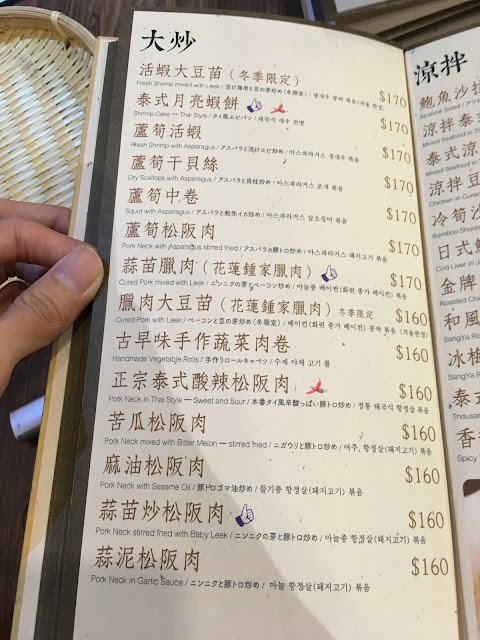 大炒
活蝦大豆苗（冬季限定）
Fresh Shrimp mixed with Leek / 活け海老と豆の芽炒め(冬限定) / 생새우 콩싹 볶음(겨울 한정)
$170
泰式月亮蝦餅
Shrimp Cake — Thai Style / タイ風エビパン / 태국식 새우 전병
$170
蘆筍活蝦
Fresh Shrimp with Asparagus / アスパラと活けエビ炒め / 아스파라거스 생새우 볶음
$170
蘆筍干貝絲
Dry Scallops with Asparagus / アスパラと貝柱炒め / 아스파라거스 조개 볶음
$170
蘆筍中卷
Squid with Asparagus / アスパラと剣先イカ炒め / 아스파라거스 살오징어 볶음
$170
蘆筍松阪肉
Pork Neck with Asparagus stirred fried / アスパラと豚トロ炒め / 아스파라거스 돼지고기 볶음
$170
蒜苗臘肉（花蓮鍾家臘肉）
Cured Pork mixed with Leek / ニンニクの芽とベーコン炒め / 마늘쫑 베이컨(화련 종가 베이컨) 볶음
$170
臘肉大豆苗（花蓮鍾家臘肉）冬季限定
Cured Pork with Leek / ベーコンと豆の芽炒め(冬限定) / 베이컨(화련 종가 베이컨) 콩싹 볶음 (겨울한정)
$160
古早味手作蔬菜肉卷
Handmade Vegetable Rolls / 手作りロールキャベツ / 수제 야채 고기 롤
$160
正宗泰式酸辣松阪肉
Pork Neck in Thai Style — Sweet and Sour / 本番タイ風辛酸っぱい豚トロ炒め / 정통 태국식 항정살(돼지고기) 볶음
$160
苦瓜松阪肉
Pork Neck mixed with Bitter Melon — stirred fried / ニガウリと豚トロ炒め / 여주, 항정살(돼지고기) 볶음
$160
麻油松阪肉
Pork Neck with Sesame Oil / 豚トロゴマ油炒め / 들기름 항정살(돼지고기) 볶음
$160
蒜苗炒松阪肉
Pork Neck stirred fried with Baby Leek / ニンニクの芽と豚トロ炒め / 마늘쫑 항정살(돼지고기) 볶음
$160
蒜泥松阪肉
Pork Neck in Garlic Sauce / ニンニクと豚トロ炒め / 마늘 항정살(돼지고기) 볶음
$160
涼拌
鮑魚沙拉
Abalone Salad / アワ
涼拌泰
Mixed Seafood in Th
泰式涼
Mixed Seafood in
涼拌豆
Chicken in Cured
冷筍沙
Bamboo Shoots
日式鱈
Cod Liver in J
金牌
Roasted Chic
和風
SangYa R
冰梅
SangYa R
泰式
Thousan
香
Spicy